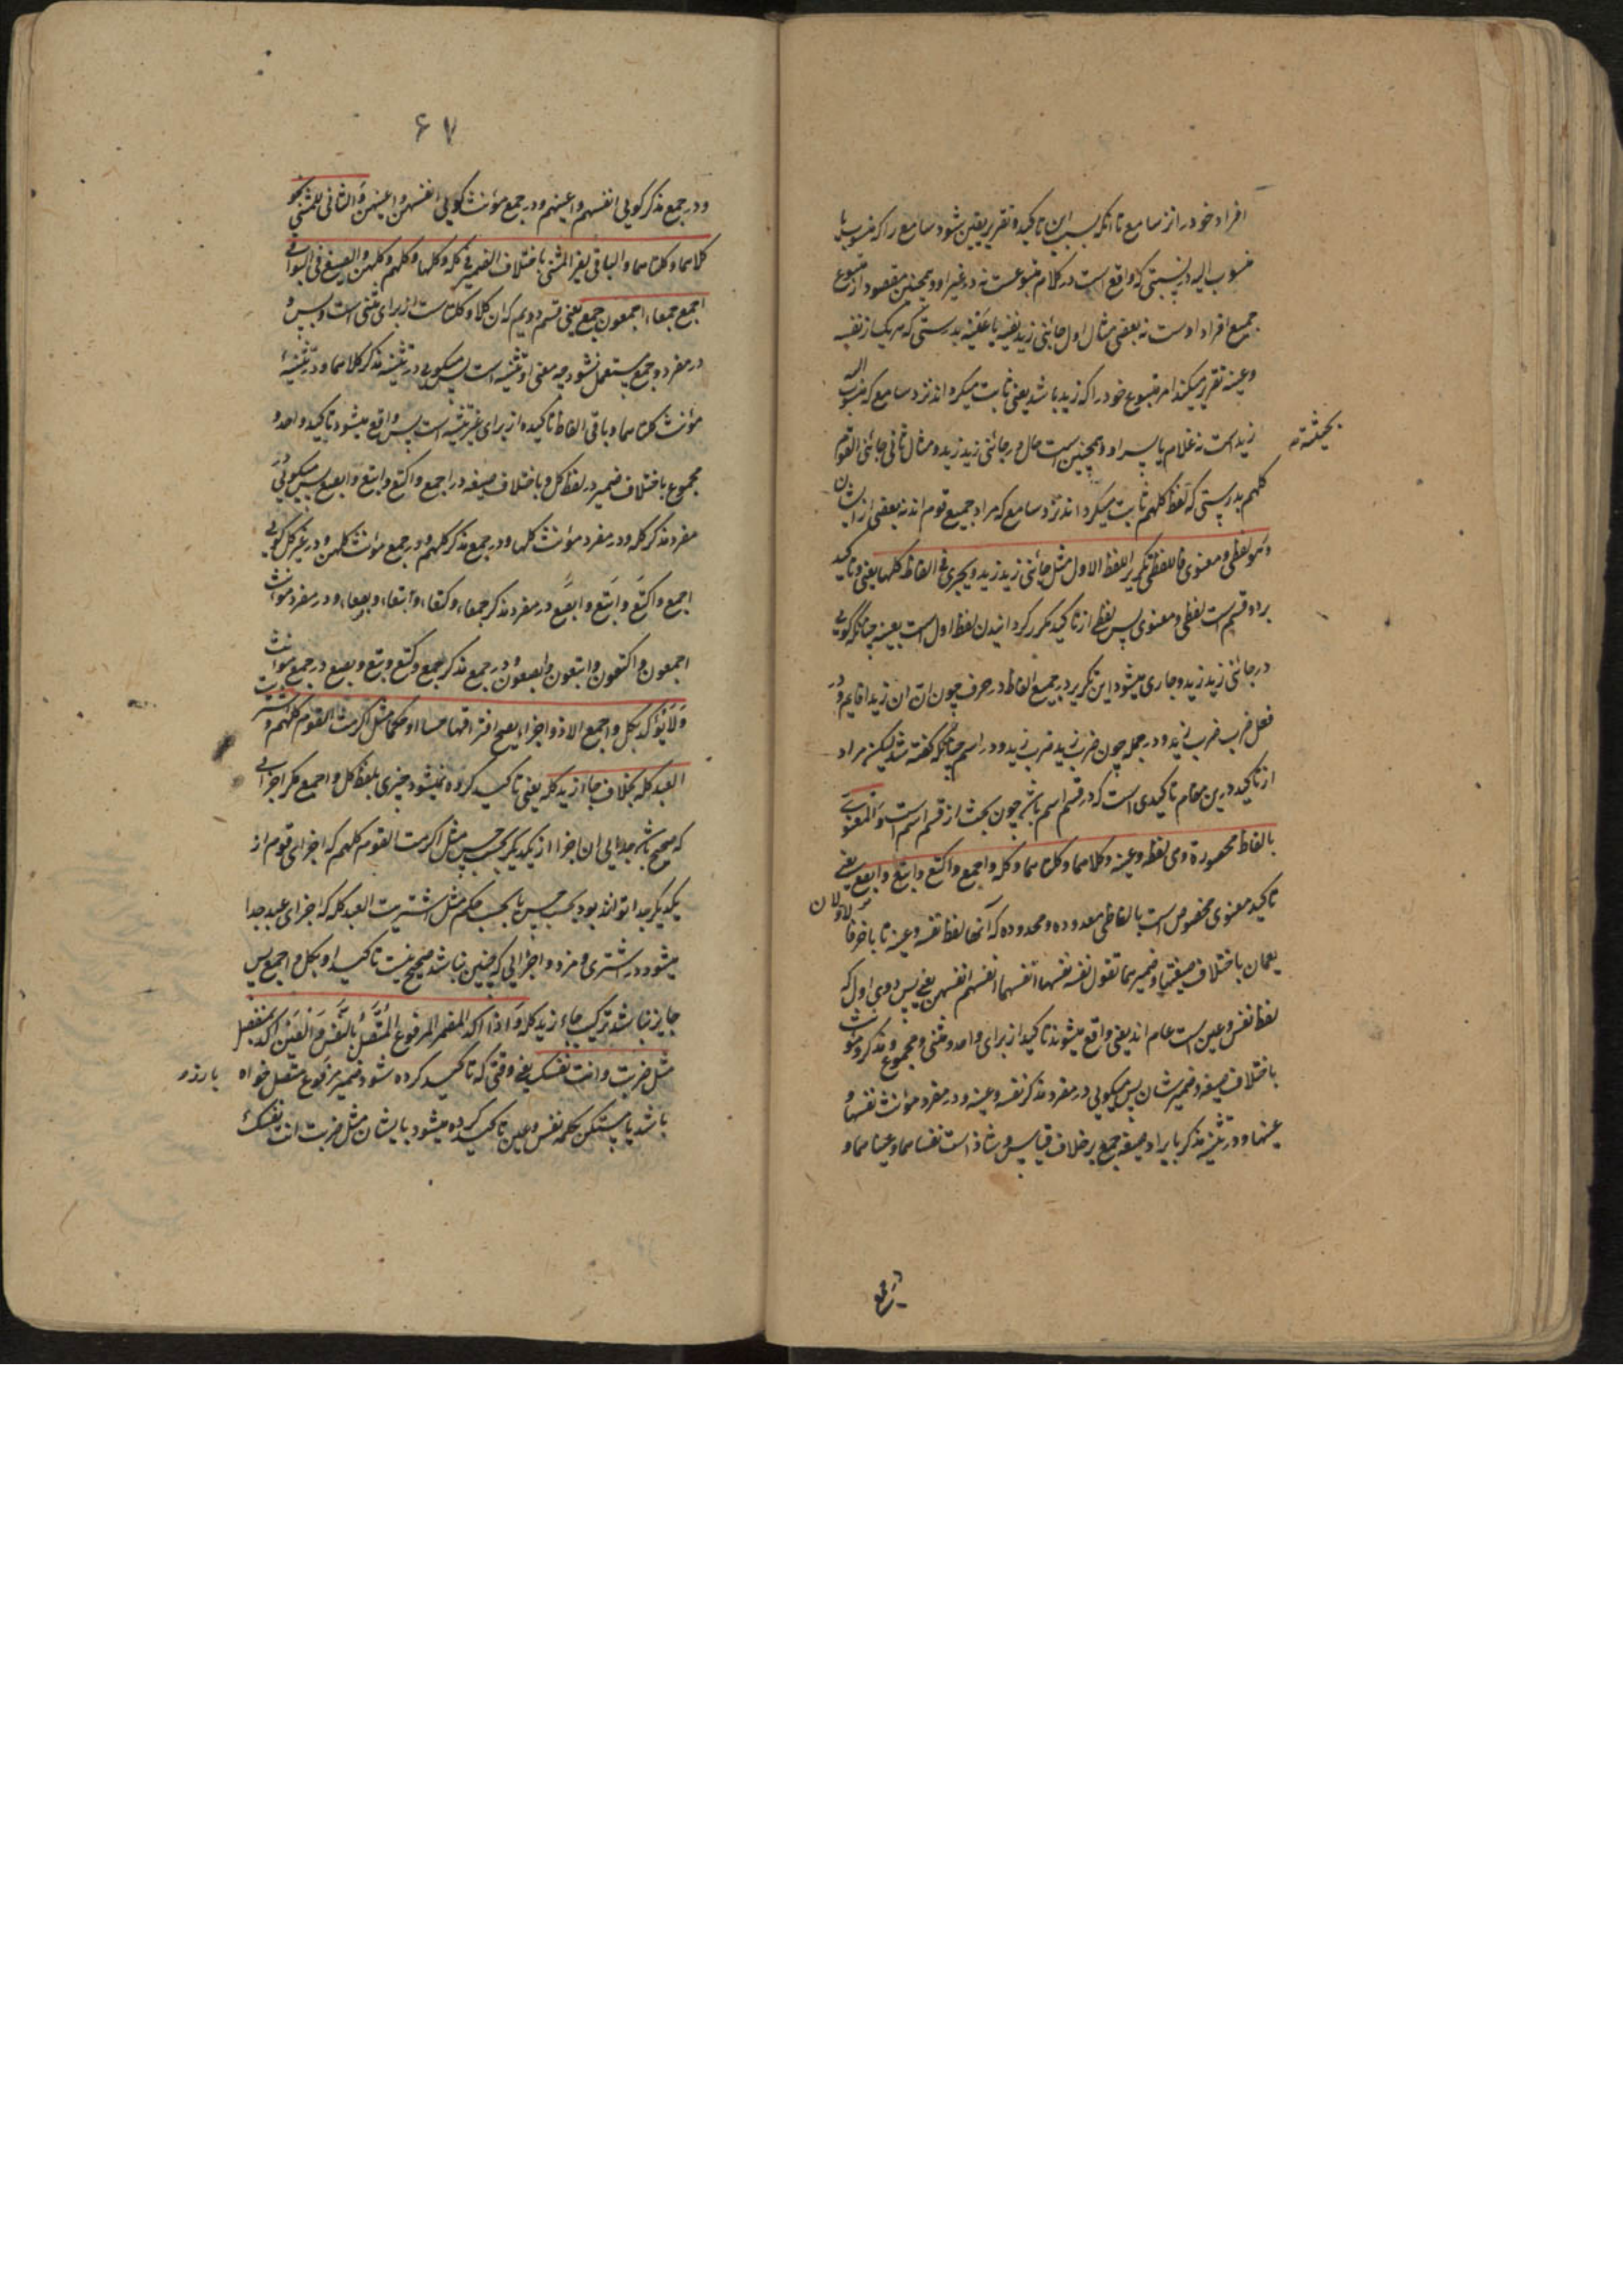 افراد خود در انز سامع تا انکه بسبب این تاکید و تقریر یقین شود سامع را که منسوب یا
منسوب الیه در نسبتی که واقع است در کلام متبوعست نه در غیر او و همچنین مقصود از متبوع
جمیع افراد اوست نه بعضی مثال اول جائنی زید نفسه یا عینه بدرستی که هر یک از نفسه
و عینه تقریر میکند امر متبوع خود را که زید باشد یعنی ثابت میکرداند نزد سامع که منسوب الیه
زید است نه غلام یا پسر او و همچنین است حال در جائنی زید زید و مثال ثانی جائنی القوم
کلهم بدرستی که لفظ کلهم ثابت میکرداند نزد سامع که مراد جمیع قوم اند نه بعضی از ایشان
و هو لفظی و معنوی فاللفظی تکریر اللفظ الاول مثل جائنی زید زید و یجری فی الفاظ کلها یعنی و تاکید
بر دو قسم است لفظی و معنوی پس لفظی از تاکید مکرر کردانیدن لفظ اول است بعینه چنانکه کویی
در جائنی زید زید و جاری میشود این تکریر در جمیع الفاظ در حرف چون ان ان زیدا قایم و در
فعل ضرب ضرب زید و در جمله چون ضرب زید ضرب زید و در اسم چنانکه کفته شد لیکن مراد
از تاکید درین مقام تاکیدی است که در قسم اسم باشد چون بحث از قسم اسم است و المعنوی
بالفاظ محصورة و هی نفسه و عینه و کلاهما و کلتاهما و کله و اجمع و اکتع و ابتع و ابصع یعنی
تاکید معنوی مخصوص است بالفاظی معدوده و محدوده که آنها لفظ نفسه و عینه تا باخر فالاولان
یعمان باختلاف صیغتهما و ضمیرهما تقول نفسه نفسها انفسهما انفسهم انفسهن یعنی پس دوی اول که
لفظ نفس و عین است عام اند یعنی واقع میشوند تاکید از برای واحد و مثنی و مجموع و مذکر و مؤنث
باختلاف صیغه و ضمیر شان پس میکویی در مفرد مذکر نفسه و عینه و در مفرد مؤنث نفسها و
عینها و در تثنیه مذکر بایراد صیغه جمع بر خلاف قیاس و شاذ است نفساهما و عیناهما و
۶۷
و در جمع مذکر کویی انفسهم و اعینهم و در جمع مؤنث کویی انفسهن و اعینهن و الثانی للمثنی نحو
کلاهما و کلتاهما و الباقی لغیر المثنی باختلاف الضمیر فی کله و کلها و کلهم و کلهن و الصیغ فی البواقی
اجمع جمعاء اجمعون جمع یعنی قسم دویم که ان کلا و کلتا ست از برای مثنی است و بس و
در مفرد و جمع مستعمل نشود چه معنی او تثنیه است پس میکویی در تثنیه مذکر کلاهما و در تثنیهٔ
مؤنث کلتاهما و باقی الفاظ تاکیده از برای غیر تثنیه است پس واقع میشود تاکید واحد و
مجموع باختلاف ضمیر در لفظ کل و باختلاف صیغه در اجمع و اکتع و ابتع و ابصع پس میکویی در
مفرد مذکر کله و در مفرد مؤنث کلها و در جمع مذکر کلهم و در جمع مؤنث کلهن و در غیر کل کویی
اجمع و اکتع و ابتع و ابصع در مفرد مذکر جمعاء و کتعاء و ابتعاء و بصعاء و در مفرد مؤنث
اجمعون و اکتعون و ابتعون و ابصعون و در جمع مذکر جمع و کتع و بتع و بصع در جمع مؤنث
و لا یؤکد بکل و اجمع الا ذو اجزاء یصح افتراقها حسا او حکما مثل اکرمت القوم کلهم و اشتریت
العبد کله بخلاف جاء زید کله یعنی تاکید کرده نمیشود چیزی بلفظ کل و اجمع مکر اجزایی
که صحیح باشد جدایی ان اجزا از یکدیکر بحسب حس مثل اکرمت القوم کلهم که اجزای قوم از
یکدیکر جدا توانند بود بحسب حس یا بحسب حکم مثل اشتریت العبد کله که اجزای عبد جدا
میشود در اشتری و مزد و اجزایی که چنین نباشد صحیح نیست تاکید او بکل و اجمع پس
جایز نباشد ترکیب جاء زید کله و اذا اکد المضمر المرفوع المتصل بالنفس و العین اکد بمنفصل
مثل ضربت انت نفسک یعنی وقتی که تاکید کرده شود ضمیر مرفوع متصل خواه بارزه
باشد یا مستکن بکلمه نفس و عین تاکید کرده میشود بایشان مثل ضربت انت نفسک